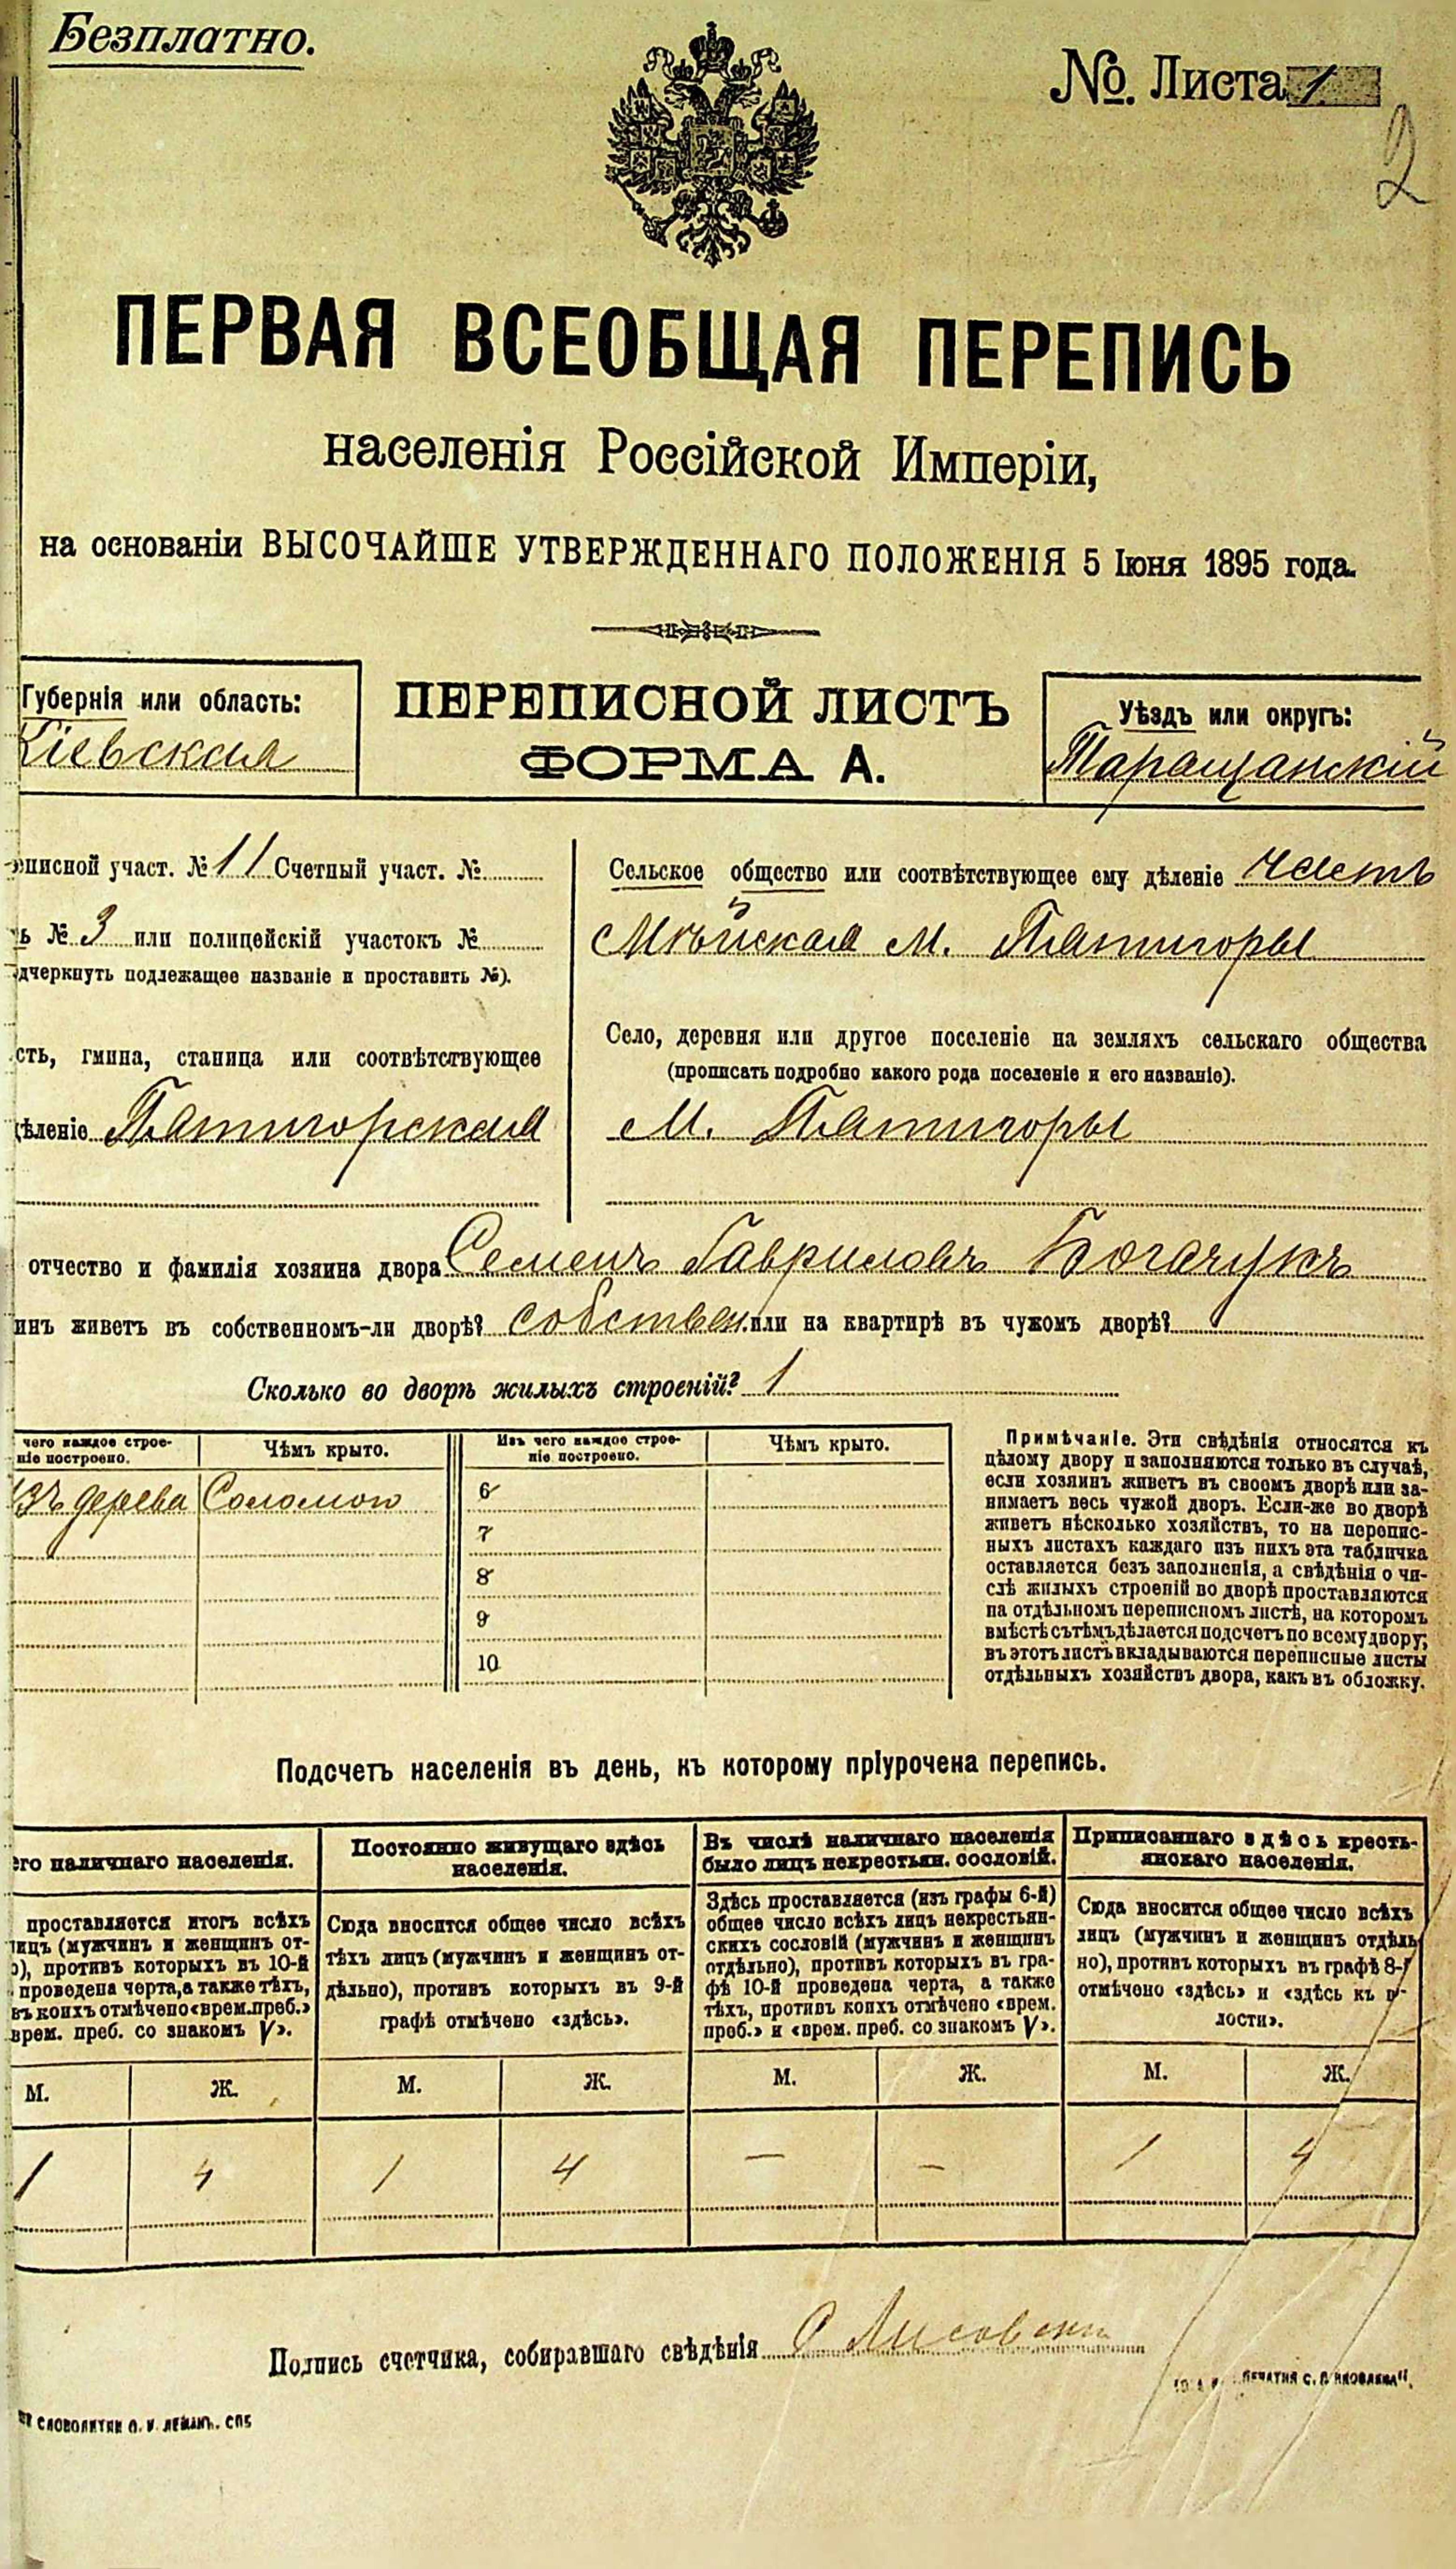 Безплатно.
№. Листа 1
2
ПЕРВАЯ ВСЕОБЩАЯ ПЕРЕПИСЬ
населенія Россійской Имперіи,
на основаніи ВЫСОЧАЙШЕ УТВЕРЖДЕННАГО ПОЛОЖЕНІЯ 5 Іюня 1895 года.
Губернія или область:
Кіевская
ПЕРЕПИСНОЙ ЛИСТЪ
ФОРМА А.
Уѣздъ или округъ:
Таращанскій
еписной участ. № 11 Счетный участ. №
ь № 3 или полицейскій участокъ №
дчеркнуть подлежащее названіе и проставить №).
сть, гмина, станица или соотвѣтствующее
дѣленіе Пятигорская
Сельское общество или соотвѣтствующее ему дѣленіе часть
м. Пятигоры
Село, деревня или другое поселеніе на земляхъ сельскаго общества
(прописать подробно какого рода поселеніе и его названіе).
М. Пятигоры
отчество и фамилія хозяина двора Семенъ Гавриловъ Богачукъ
инъ живетъ въ собственномъ-ли дворѣ? собствен. или на квартирѣ въ чужомъ дворѣ?
Сколько во дворѣ жилыхъ строеній? 1
чего каждое строе-
ніе построено.
Чѣмъ крыто.
Изъ чего каждое строе-
ніе построено.
Чѣмъ крыто.
изъ дерева Соломою
6
7
8
9
10
Примѣчаніе. Эти свѣдѣнія относятся къ
цѣлому двору и заполняются только въ случаѣ,
если хозяинъ живетъ въ своемъ дворѣ или за-
нимаетъ весь чужой дворъ. Если-же во дворѣ
живетъ нѣсколько хозяйствъ, то на перепис-
ныхъ листахъ каждаго изъ нихъ эта табличка
оставляется безъ заполненія, а свѣдѣнія о чи-
слѣ жилыхъ строеній во дворѣ проставляются
на отдѣльномъ переписномъ листѣ, на которомъ
вмѣстѣ съ тѣмъ дѣлается подсчетъ по всему двору;
въ этотъ листъ вкладываются переписные листы
отдѣльныхъ хозяйствъ двора, какъ въ обложку.
Подсчетъ населенія въ день, къ которому пріурочена перепись.
его наличнаго населенія.
проставляется итогъ всѣхъ
лицъ (мужчинъ и женщинъ от-
о), противъ которыхъ въ 10-й
проведена черта, а также тѣхъ,
въ коихъ отмѣчено «врем. преб.»
врем. преб. со знакомъ V».
Постоянно живущаго здѣсь
населенія.
Сюда вносится общее число всѣхъ
тѣхъ лицъ (мужчинъ и женщинъ от-
дѣльно), противъ которыхъ въ 9-й
графѣ отмѣчено «здѣсь».
Въ числѣ наличнаго населенія
было лицъ некрестьян. сословій.
Здѣсь проставляется (изъ графы 6-й)
общее число всѣхъ лицъ некрестьян-
скихъ сословій (мужчинъ и женщинъ
отдѣльно), противъ которыхъ въ гра-
фѣ 10-й проведена черта, а также
тѣхъ, противъ коихъ отмѣчено «врем.
преб.» и «врем. преб. со знакомъ V».
Приписаннаго здѣсь кресть-
янскаго населенія.
Сюда вносится общее число всѣхъ
лицъ (мужчинъ и женщинъ отдѣль
но), противъ которыхъ въ графѣ 8-й
отмѣчено «здѣсь» и «здѣсь къ в-
лости».
М. Ж. М. Ж. М. Ж. М. Ж.
1 4 1 4 — — 1 4
Подпись счетчика, собиравшаго свѣдѣнія Лисовскі
СЛОВОЛИТНИ О. И. ЛЕМАНЪ. СПБ
ПЕЧАТНЯ С. П. ЯКОВЛЕВА".